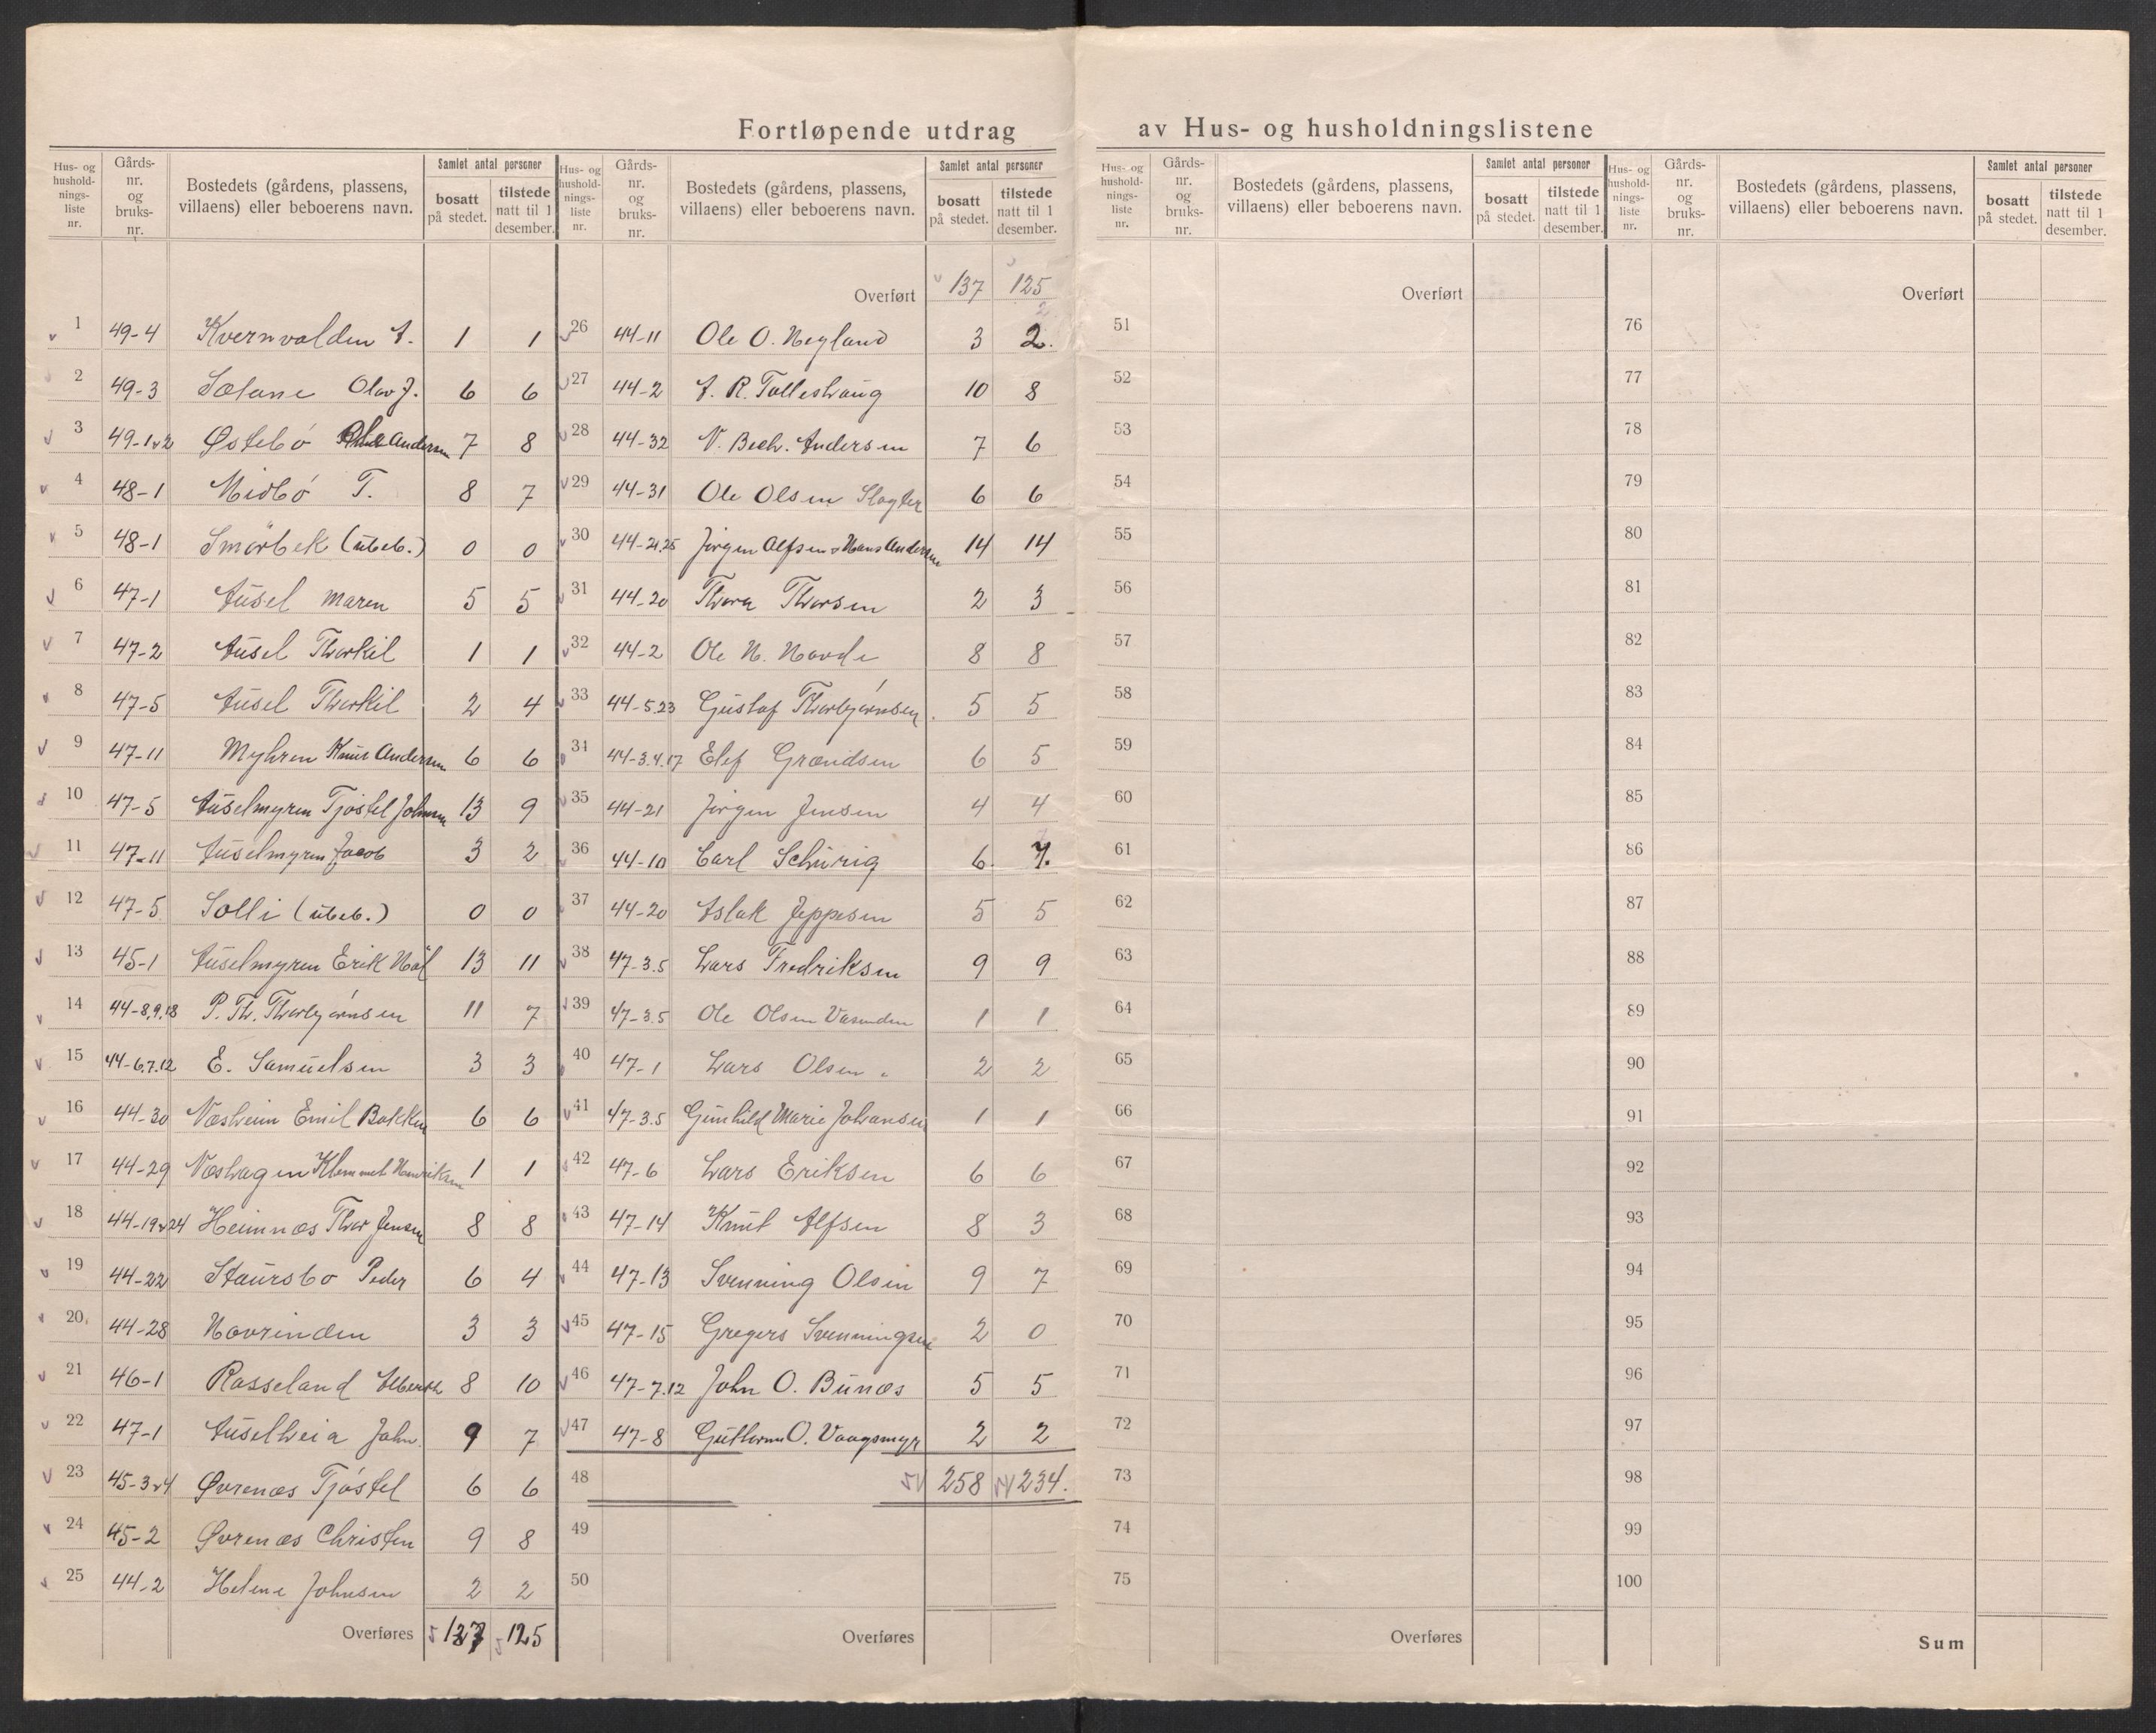 Fortløpende utdrag av Hus- og husholdningslistene
Hus- og husholdnings-liste nr. | Gårds-nr. og bruks-nr. | Bostedets (gårdens, plassens, villaens) eller beboerens navn. | Samlet antal personer | bosatt på stedet. | tilstede natt til 1 desember.
1 49-4 Kvernvolden A. 1 1
2 49-3 Sælane Olav J. 6 6
3 49-1&2 Østebö Andersen 7 8
4 48-1 Midbö T. 8 7
5 48-1 Smörbek (ubeb.) 0 0
6 47-1 Ausel Maren 5 5
7 47-2 Ausel Thorkil 1 1
8 47-5 Ausel Thorkil 2 4
9 47-11 Myhren Knut Andersen 6 6
10 47-5 Auselmyren Tjöstel Johnsen 13 9
11 47-11 Auselmyren Jacob 3 2
12 47-5 Solli (ubeb.) 0 0
13 45-1 Auselmyren Erik 13 11
14 44-8,9,18 P. Th. Thorbjørnsen 11 7
15 44-6.7.12 E. Samuelsen 3 3
16 44-30 Næsheim Emil Bakken 6 6
17 44-29 Næshagen Klemmet Henriksen 1 1
18 44-19&24 Heimnæs Thor Jensen 8 8
19 44-22 Staursbo Peder 6 4
20 44-28 Hovrinden 3 3
21 46-1 Rosseland Alberth 8 10
22 47-1 Auselheia John 9 7
23 45-3&4 Øvrenæs Tjöstel 6 6
24 45-2 Øvrenæs Christen 9 8
25 44-2 Helene Johnsen 2 2
Overføres 137 125
Hus- og husholdnings-liste nr. | Gårds-nr. og bruks-nr. | Bostedets (gårdens, plassens, villaens) eller beboerens navn. | Samlet antal personer | bosatt på stedet. | tilstede natt til 1 desember.
Overført 137 125
26 44-11 Ole O. Heyland 3 2.
27 44-2 A. R. Talleshaug 10 8
28 44-32 N. Bech. Andersen 7 6
29 44-31 Ole Olsen Slagter 6 6
30 44-21,25 Jørgen Alfsen & Hans Andersen 14 14
31 44-20 Thora Thorsen 2 3
32 44-2 Ole N. Hovde 8 8
33 44-5.23 Gustaf Thorbjørnsen 5 5
34 44-3.4.17 Elef Grændsen 6 5
35 44-21 Jørgen Jensen 4 4
36 44-10 Carl Schürig 6. 7.
37 44-20 Aslak Jeppesen 5 5
38 47-3.5 Lars Fredriksen 9 9
39 47-3.5 Ole Olsen 1 1
40 47-1 Lars Olsen 2 2
41 47-3.5 Gunhild Marie Johansen 1 1
42 47-6 Lars Eriksen 6 6
43 47-14 Knut Alfsen 8 3
44 47-13 Svenning Olsen 9 7
45 47-15 Gregers Svenningsen 2 0
46 47-7.12 John O. Bunæs 5 5
47 47-8 Guttorm O. Vaagsmyr 2 2
48 258 234.
49
50
Overføres
Hus- og husholdnings-liste nr. | Gårds-nr. og bruks-nr. | Bostedets (gårdens, plassens, villaens) eller beboerens navn. | Samlet antal personer | bosatt på stedet. | tilstede natt til 1 desember.
Overført
51
52
53
54
55
56
57
58
59
60
61
62
63
64
65
66
67
68
69
70
71
72
73
74
75
Overføres
Hus- og husholdnings-liste nr. | Gårds-nr. og bruks-nr. | Bostedets (gårdens, plassens, villaens) eller beboerens navn. | Samlet antal personer | bosatt på stedet. | tilstede natt til 1 desember.
Overført
76
77
78
79
80
81
82
83
84
85
86
87
88
89
90
91
92
93
94
95
96
97
98
99
100
Sum